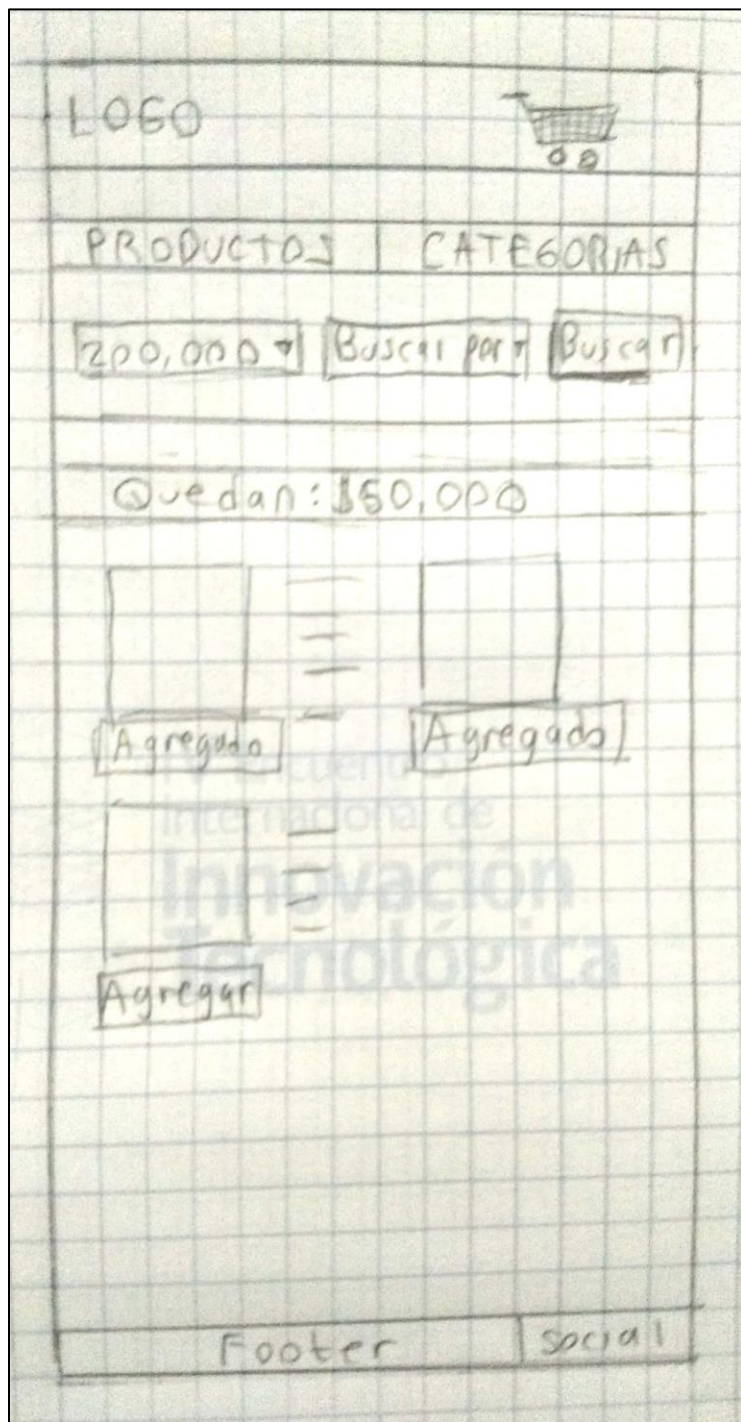 LOGO
PRODUCTOS | CATEGORIAS
200,000 Buscar por Buscar
Quedan: $50,000
Agregado Agregado
cuentro
internacional de
Innovación
Tecnológica
Agregar
Footer Social